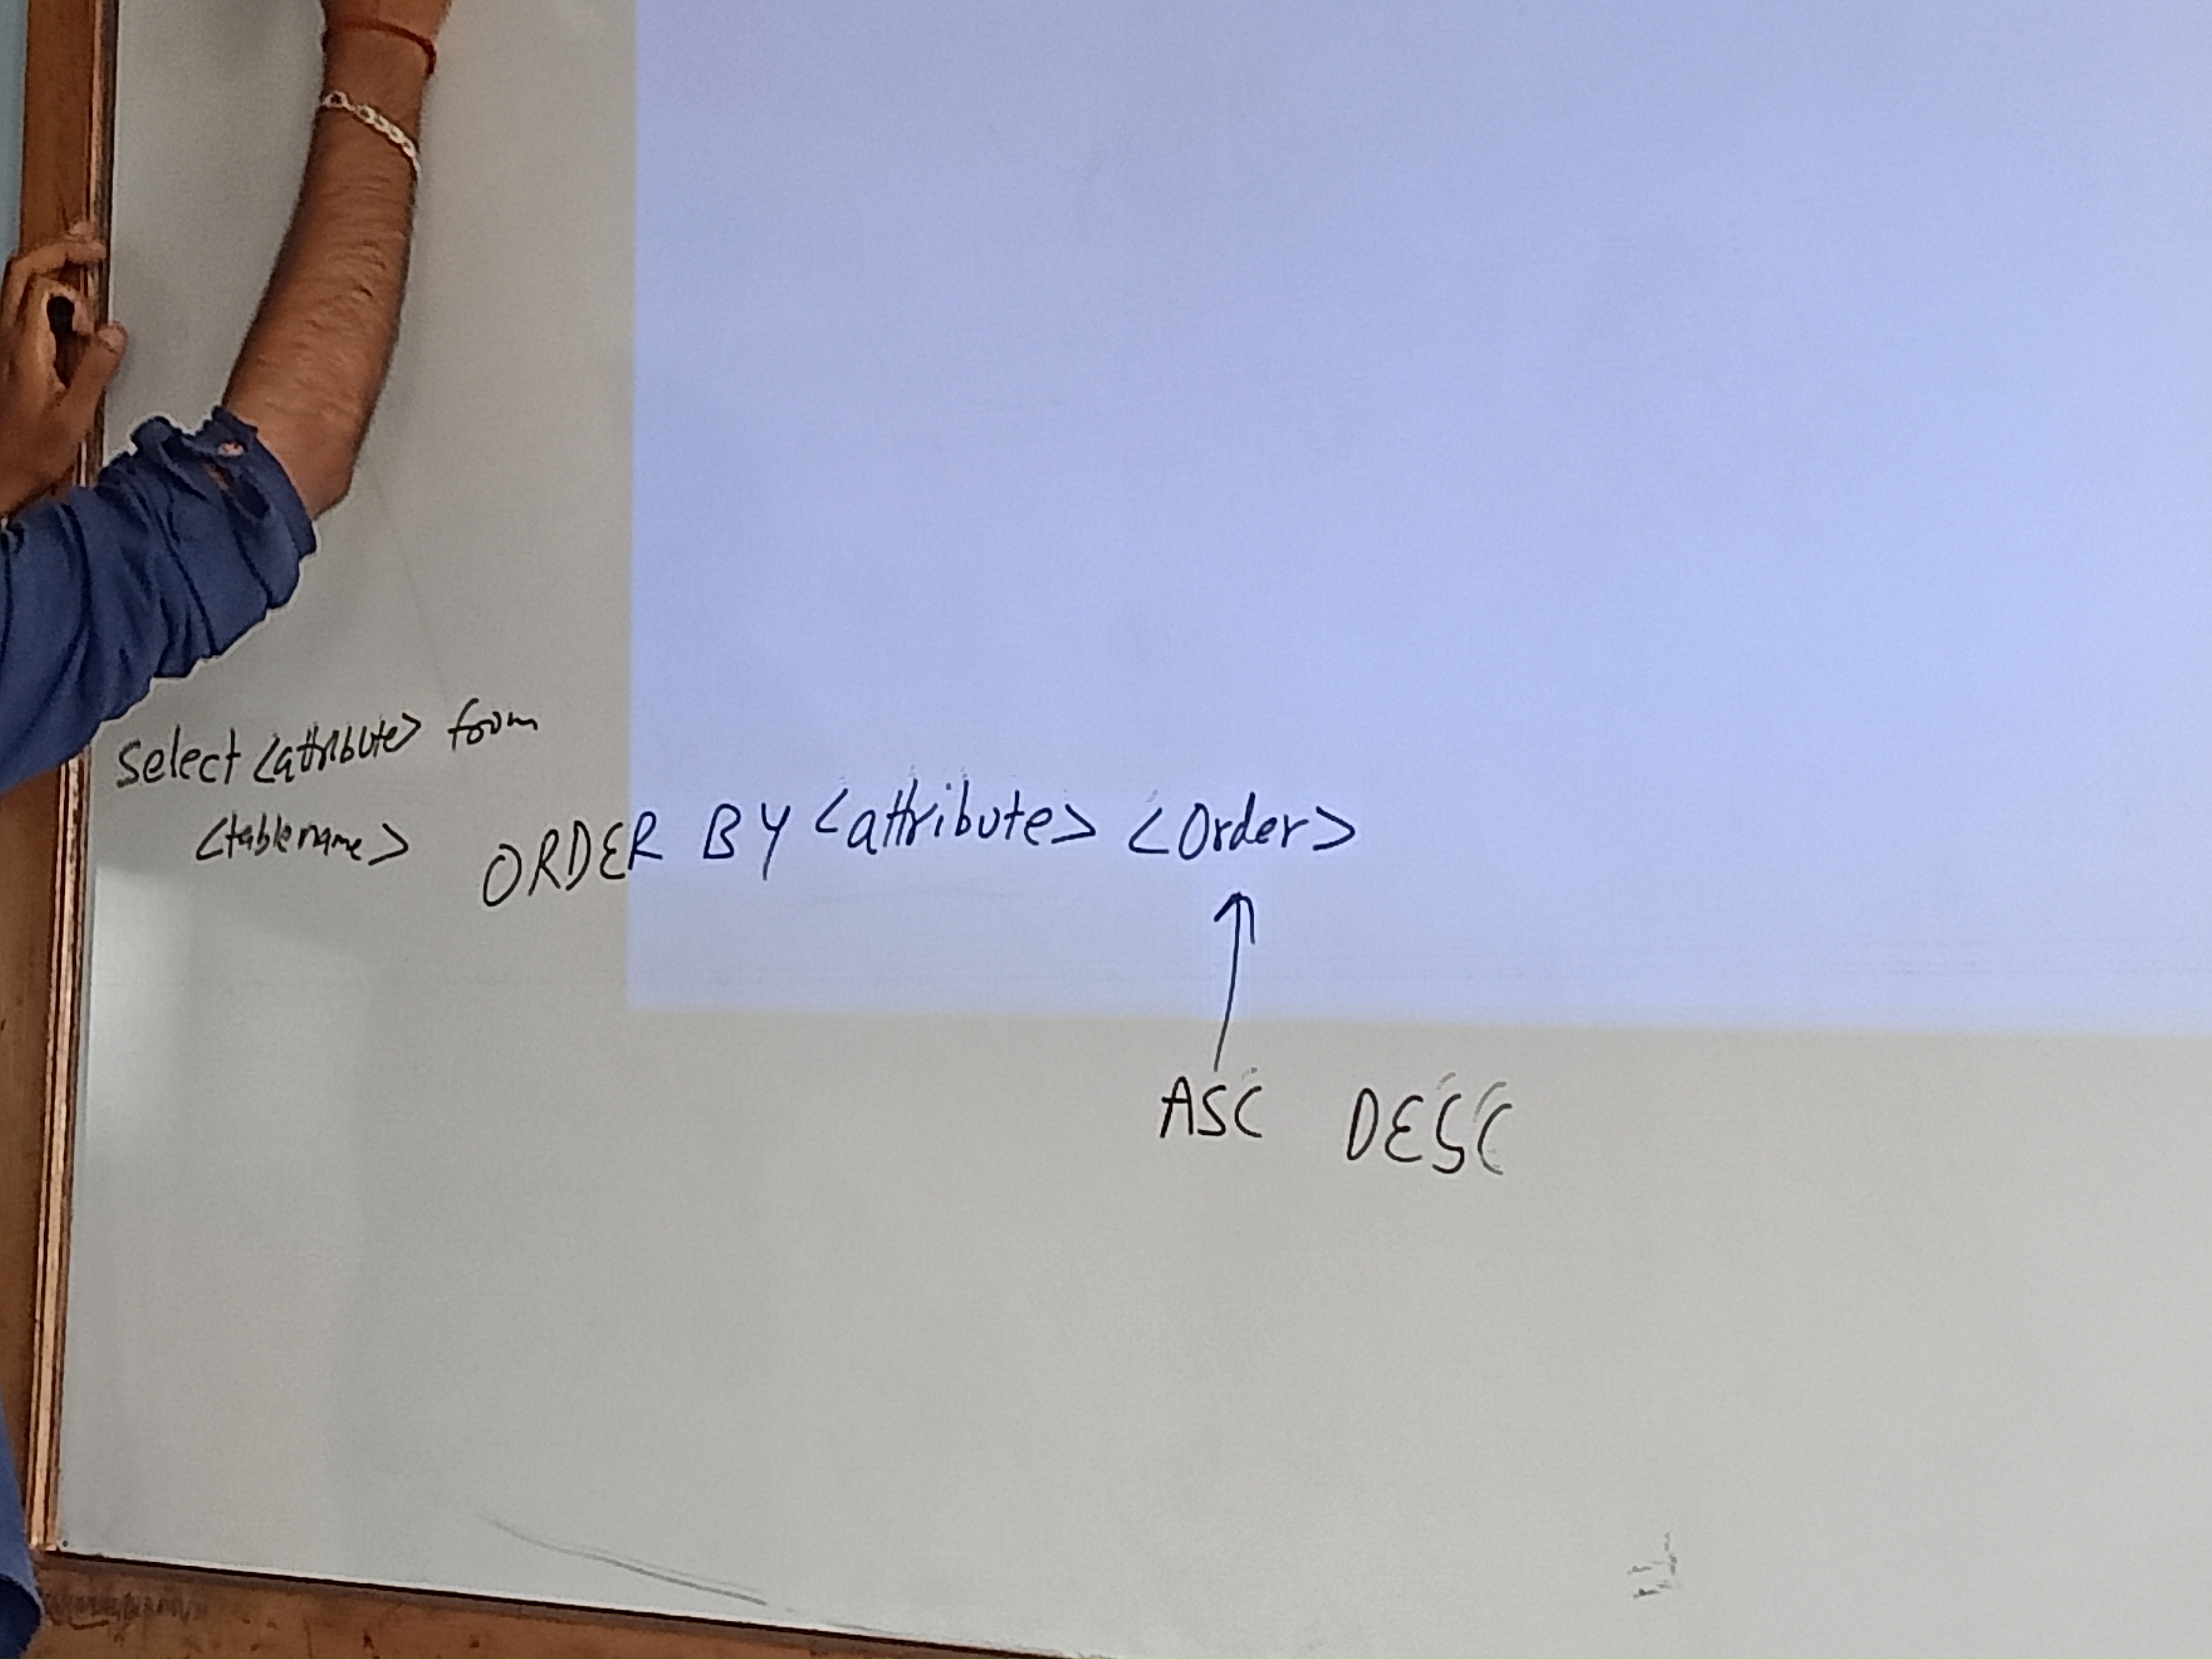 Select <attribute> from
<table name> ORDER BY <attribute> <Order>
ASC DESC